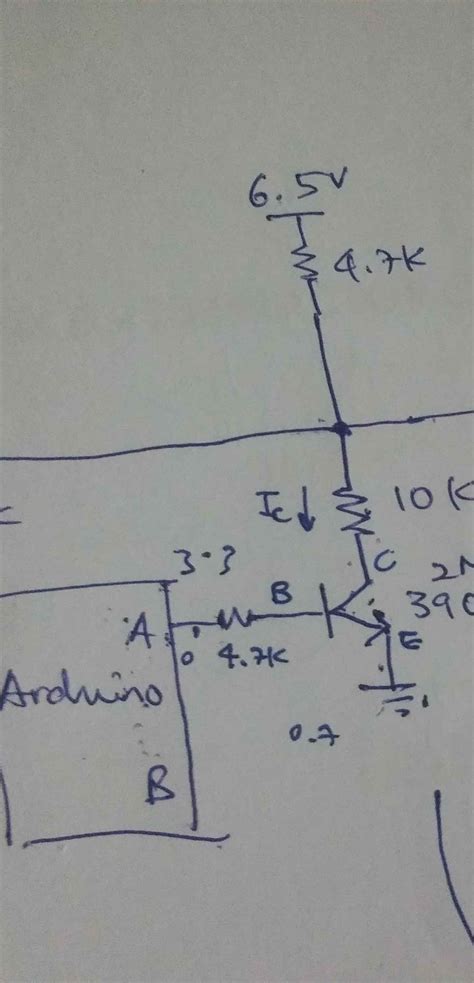 6.5V
4.7K
Ic
10K
C
3.3
B
A
0
4.7K
E
Arduino
0.7
B